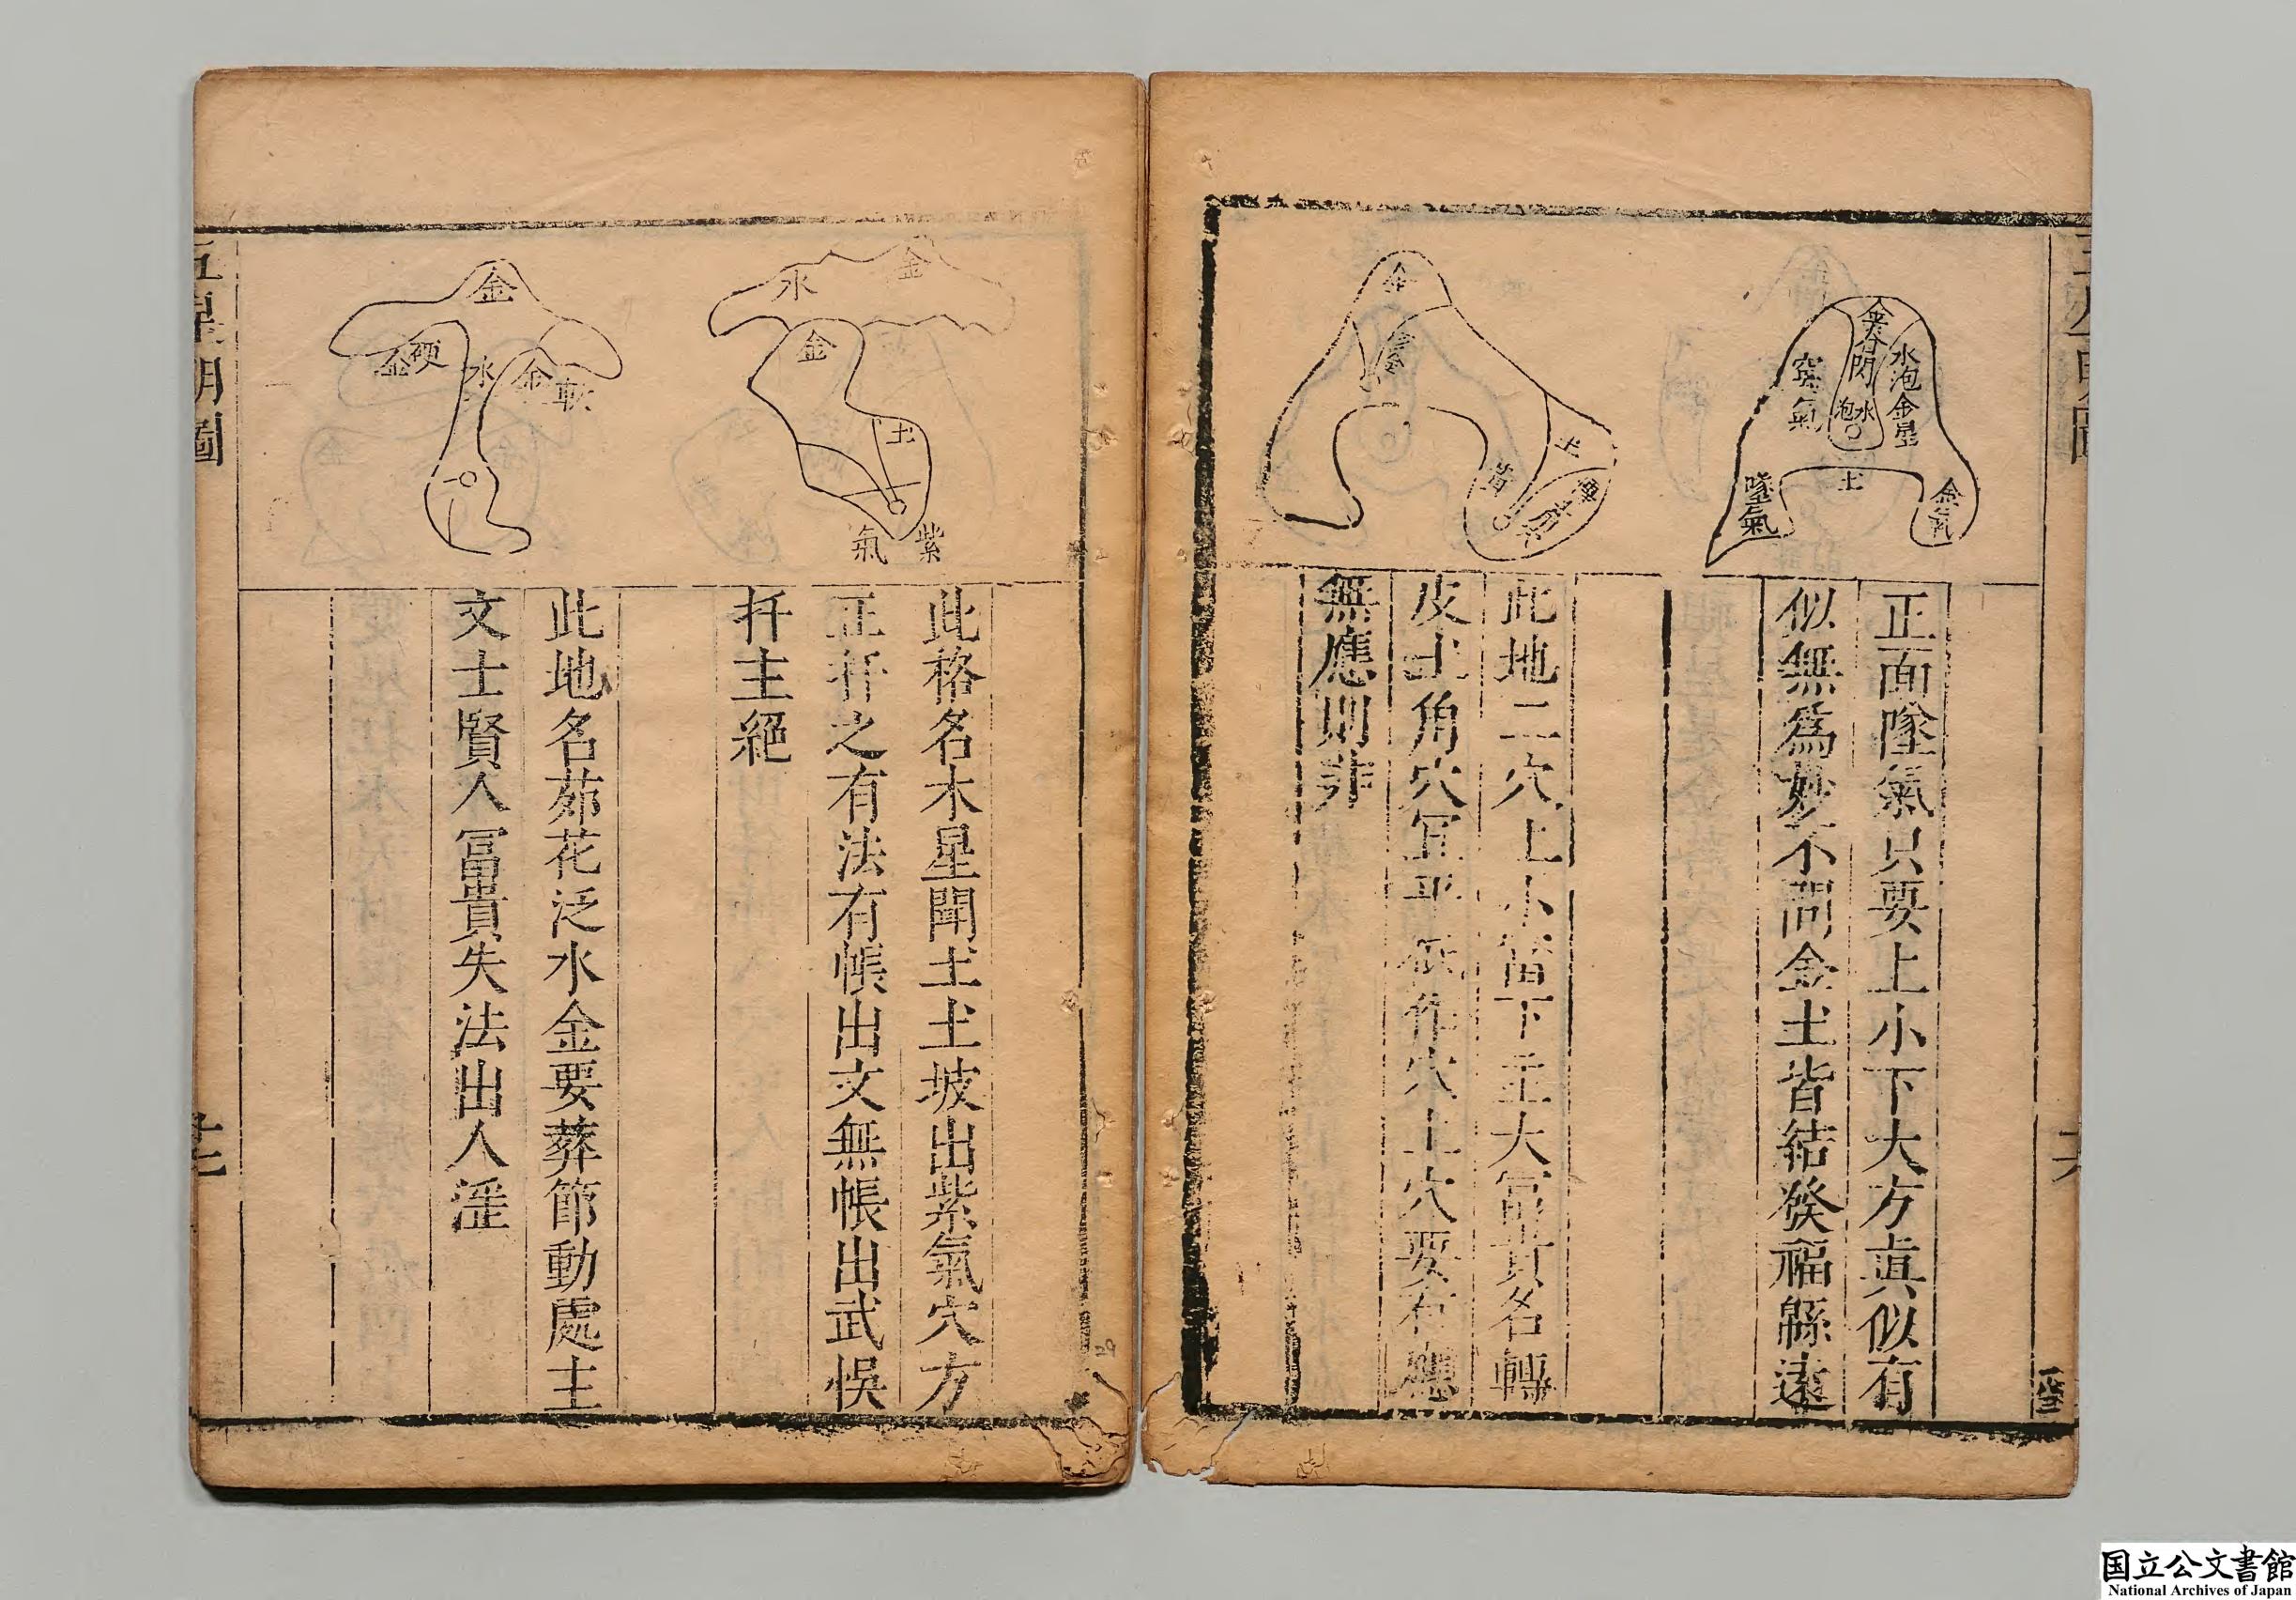 金水
金
土
紫
氣
金
硬
金
水
金
軟
此格名木星開土土坡出紫氣穴方
正扦之有法有帳出文無帳出武悞
扦主絕
此地名茆花泛水金要葬節動處主
文士賢人冨貴失法出人滛
五星明圖
金
水泡金星
閃
水泡
窩氣
土
墜氣
金氣
正面墜氣只要上小下大方真似有
似無爲妙不問金土皆結發福縣遠
金
土
此地二穴上小富下主大冨貴名轉
皮土角穴冝平作穴上穴要有應
無應則非
国立公文書館
National Archives of Japan